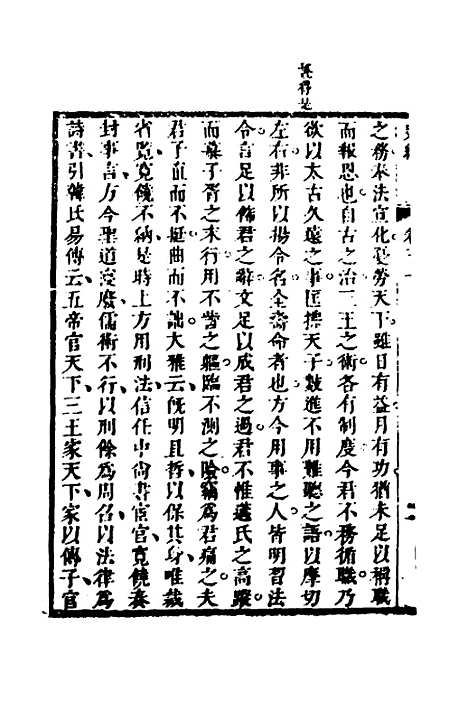 說得是
之務奉法宣化憂勞天下雖日有益月有功猶未足以稱職
而報恩也自古之治三王之術各有制度今君不務循職乃
欲以太古久遠之事匡拂天子數進不用難聽之語以摩切
左右非所以揚令名全壽命者也方今用事之人皆明習法
令言足以飾君之辭文足以成君之過君不惟蘧氏之高蹤
而慕子胥之末行用不訾之軀臨不測之險竊為君痛之夫
君子直而不挺曲而不詘大雅云旣明且哲以保其身唯裁
省覽寬饒不納是時上方用刑法信任中尙書宦官寬饒奏
封事言方今聖道寖廢儒術不行以刑餘為周召以法律為
詩書引韓氏易傳云五帝官天下三王家天下家以傳子官